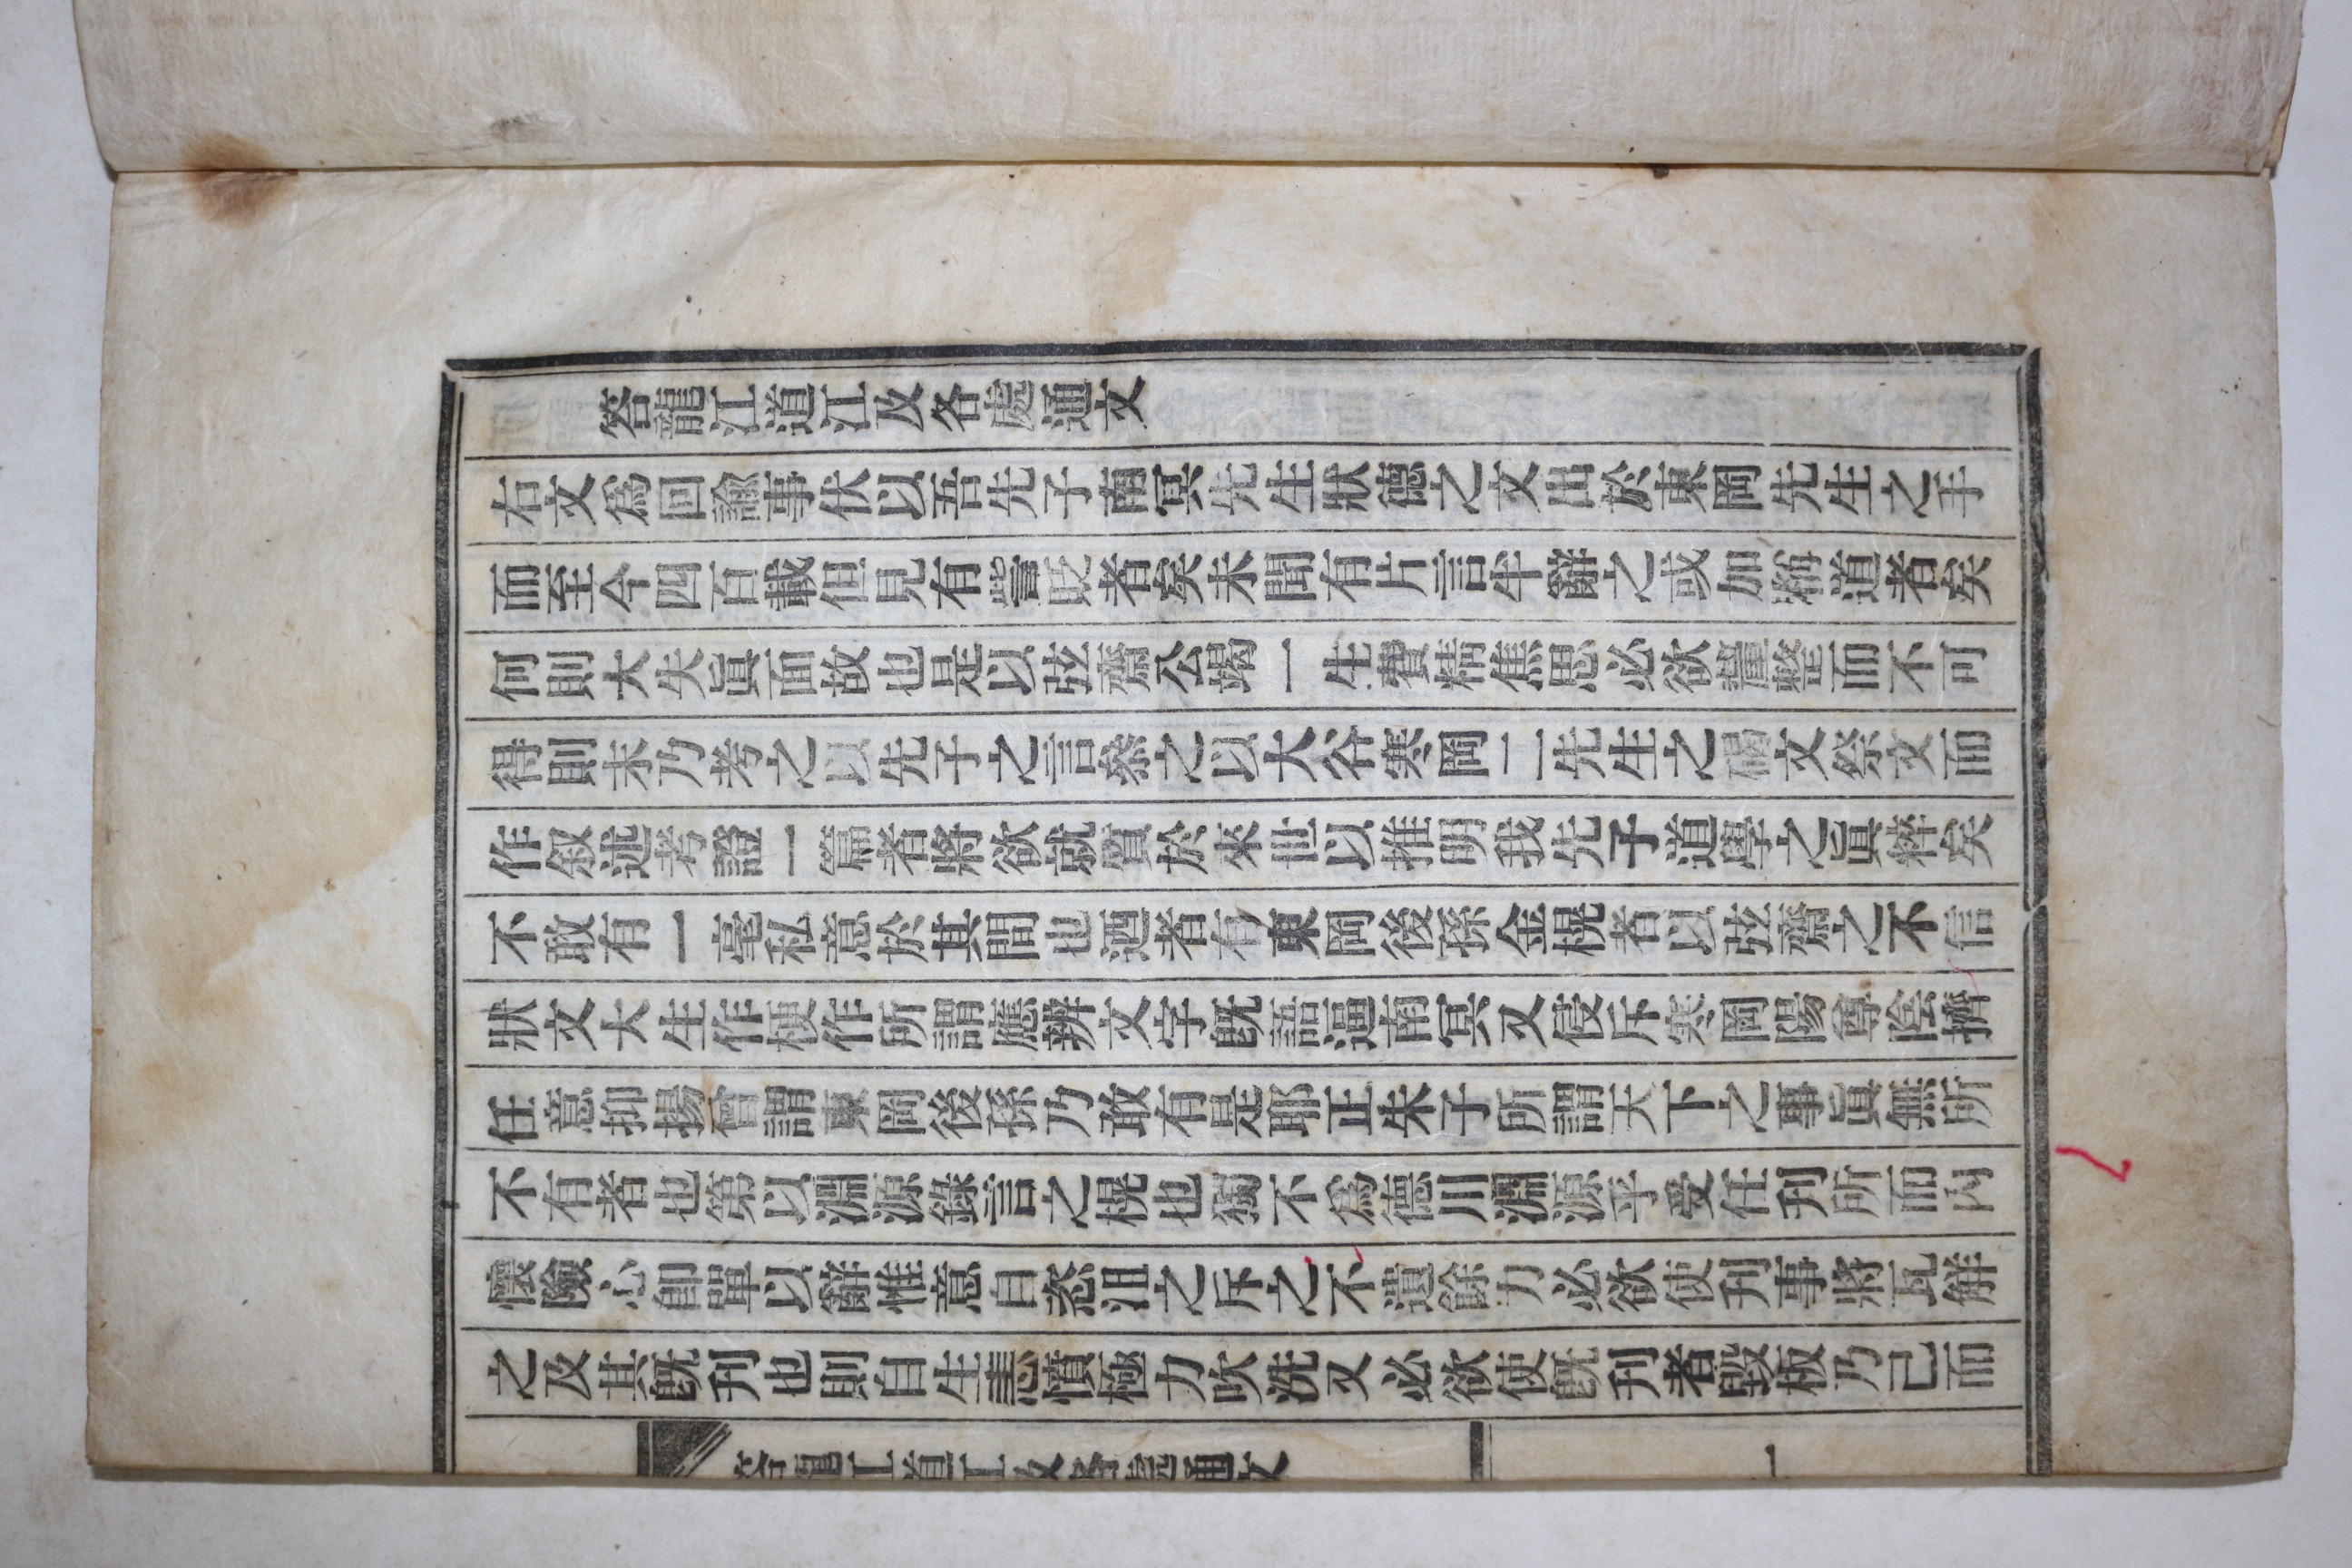 答龍江道江及各處通文
右文爲回諭事伏以吾先子南冥先生狀德之文出於東岡先生之手
而至今四百載但見有訾貶者矣未聞有片言半辭之或加稱道者矣
何則大失眞面故也是以弦齋公竭一生費精焦思必欲釐整而不可
得則未乃考之以先子之言叅之以大谷寒岡二先生之碣文祭文而
作叙述考證一篇者將欲就質於來世以推明我先子道學之眞粹矣
不敢有一毫私意於其間也迺者有東岡後孫金梡者以弦齋之不信
狀文大生作梗作所謂應辨文字旣語逼南冥又侵斥寒岡陽尊陰擠
任意抑揚曾謂東岡後孫乃敢有是耶正朱子所謂天下之事眞無所
不有者也第以淵源錄言之梡也獨不爲德川淵源乎受任刊所而內
懷險心飾單以辭惟意自恣沮之斥之不遺餘力必欲使刊事將瓦解
之及其旣刊也則自生恚憤極力吹洗又必欲使旣刊者毁板乃已而
答龍江道江及各處通文 一
7